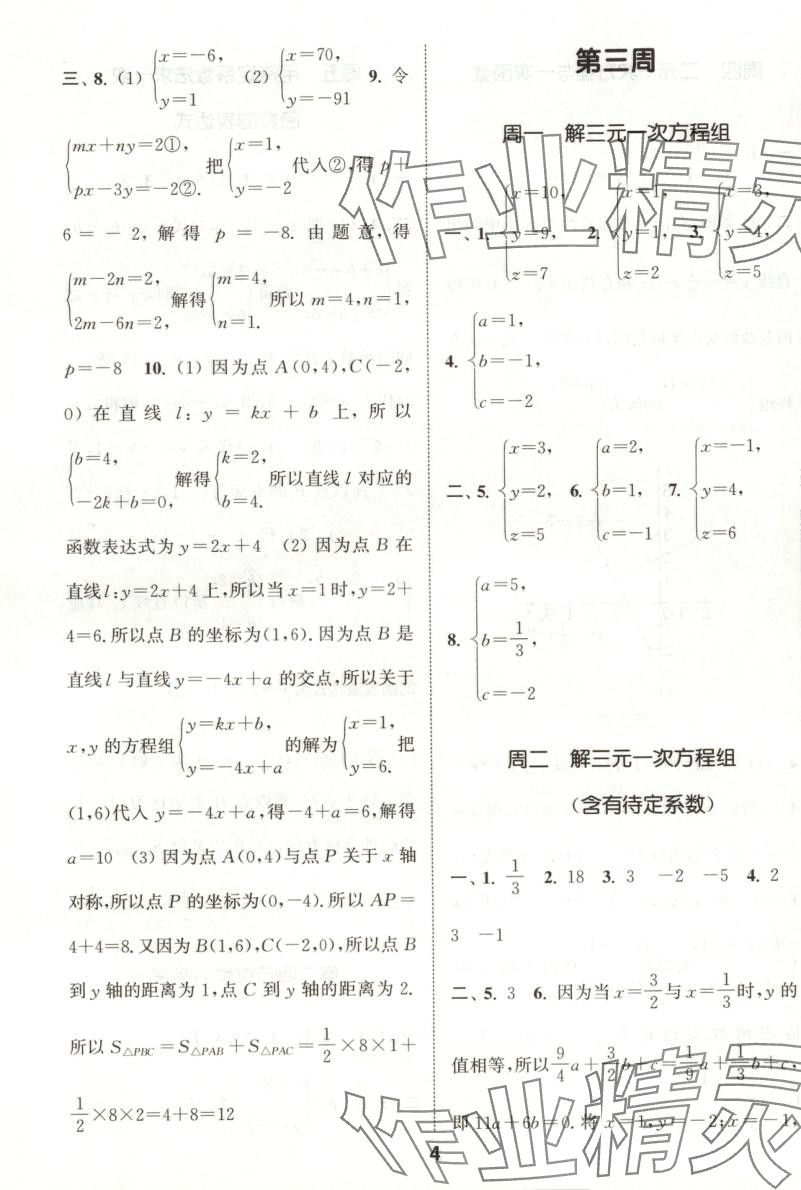 三、8. (1) {x=-6, y=1 (2) {x=70, y=-91 9. 令
{mx+ny=2①, px-3y=-2②. 把 {x=1, y=-2 代入②,得 p+
6=-2,解得 p=-8. 由题意,得
{m-2n=2, 2m-6n=2, 解得 {m=4, n=1. 所以 m=4,n=1,
p=-8 10. (1) 因为点 A(0,4),C(-2,
0)在直线 l: y=kx+b 上,所以
{b=4, -2k+b=0, 解得 {k=2, b=4. 所以直线 l 对应的
函数表达式为 y=2x+4 (2) 因为点 B 在
直线 l:y=2x+4 上,所以当 x=1 时,y=2+
4=6.所以点 B 的坐标为(1,6).因为点 B 是
直线 l 与直线 y=-4x+a 的交点,所以关于
x,y 的方程组 {y=kx+b, y=-4x+a 的解为 {x=1, y=6. 把
(1,6)代入 y=-4x+a,得-4+a=6,解得
a=10 (3) 因为点 A(0,4)与点 P 关于 x 轴
对称,所以点 P 的坐标为(0,-4).所以 AP=
4+4=8.又因为 B(1,6),C(-2,0),所以点 B
到 y 轴的距离为 1,点 C 到 y 轴的距离为 2.
所以 S△PBC=S△PAB+S△PAC=1/2×8×1+
1/2×8×2=4+8=12
第三周
周一 解三元一次方程组
一、1. {x=10, y=9, z=7 2. {x=1, y=1, z=2 3. {x=3, y=4, z=5
4. {a=1, b=-1, c=-2
二、5. {x=3, y=2, z=5 6. {a=2, b=1, c=-1 7. {x=-1, y=4, z=6
8. {a=5, b=1/3, c=-2
周二 解三元一次方程组
(含有待定系数)
一、1. 1/3 2. 18 3. 3 -2 -5 4. 2
3 -1
二、5. 3 6. 因为当 x=3/2 与 x=1/3 时,y 的
值相等,所以 9/4 a+3/2 b+c=1/9 a+1/3 b+c,
即 11a+6b=0. 将 x=1,y=-2;x=-1,
4
作业精灵
作业精灵